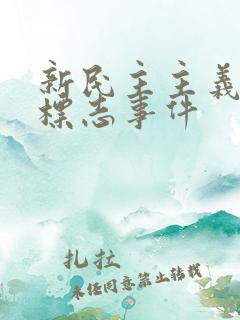 新民主主義
標志事件
扎拉
未经同意禁止转载